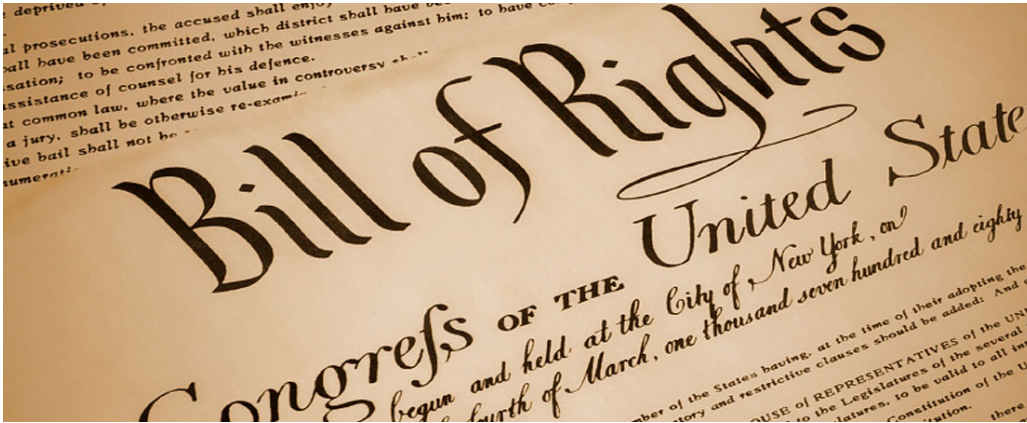 deprived
al prosecutions, the accused shall enjoy
all have been committed, which district shall have
sation; to be confronted with the witnesses against him; to have
ssistance of counsel for his defence.
at common law, where the value in controversy
a jury, shall be otherwise re-exami
ive bail shall not be
Bill of Rights
Congreſs OF THE United State
begun and held at the City of New York, on
fourth of March, one thousand seven hundred and eighty
mber of the States having, at the time of their adopting the
tory and restrictive clauses should be added: And
OUSE of REPRESENTATIVES of the UNI
to the Legislatures of the several
latures, to be valid to all int
Constitution of the U
itution.
there